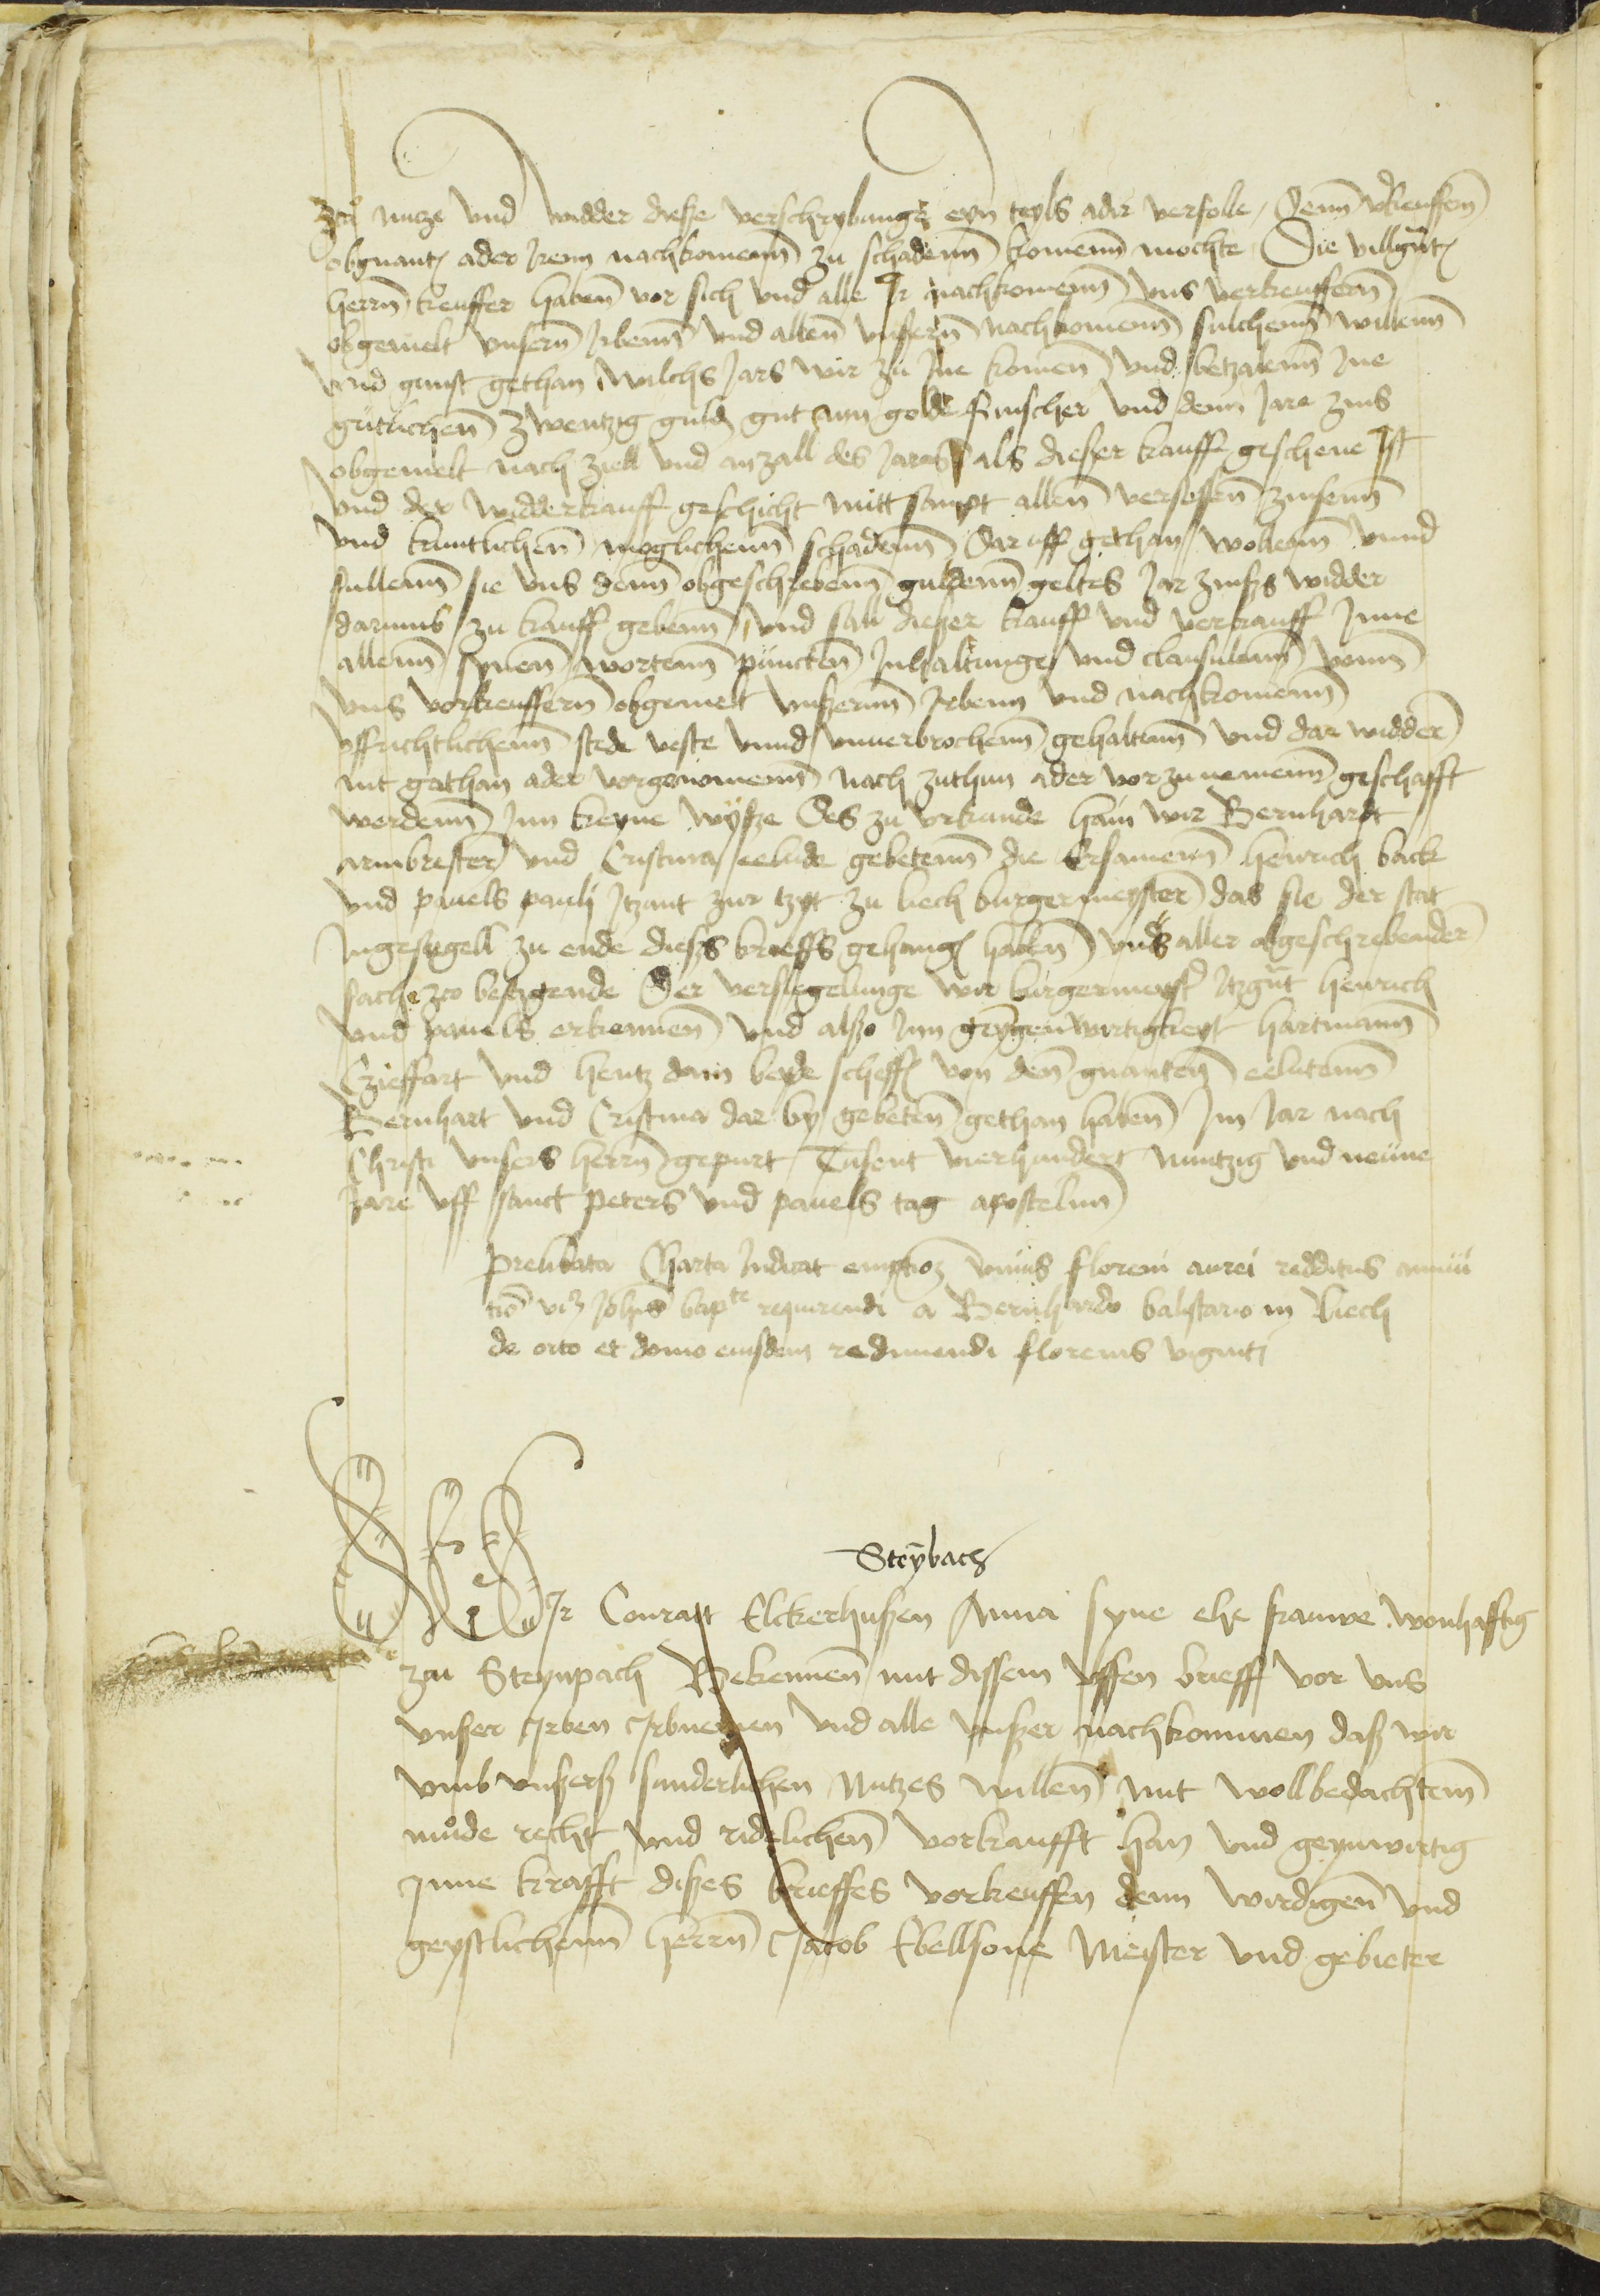 zcu nutze vnd widder diesse verschrybunge eyn teyls ader verfolle, Denn vkeuffern̄
obgnantꝭ ader Jrenn nachkomenn̄ zu schadenn̄ komenn̄ mochte Die villgn̄tꝭ
herrn̄ keuffer haben̄ vor sich vnd alle Ir nachkomenn̄ vns verkeuffern̄
obgemelt vnsern̄ Irbenn̄ vnd allen̄ vnsern̄ nachkomenn̄ sulchenn̄ willenn̄
vnd gunst gethan wilchs Jars wir zu Jne komen̄ vnd betzalenn̄ Jne
gutlichen̄ zwentzig guldꝭ gut ann golde frnscher vnd denn Jare zins
obgemelt nach ziell vnd anzall des Jares als dieser kauff geschene Ist
vnd der widderkauff geschicht mitt sampt allen̄ versessen̄ zinsenn̄
vnd kuntlichen̄ moglichenn̄ schadenn̄ dar uff gethan wollenn̄ vnnd
sullenn̄ sie vns denn̄ obgeschrebenn̄ guldenn̄ geltes Jar zinsß widder
darumb zu kauff gebenn̄ vnd sall dießer kauff vnd verkauff Inne
allenn̄ synen̄ wortenn̄ puncten̄ Inhaltunge vnd clausulenn̄ vonn̄
vns vorkeuffern̄ obgemelt vnßernn̄ Irbenn vnd nachkomenn̄
vffrichtlichenn̄ stede veste vnnd vnuerbrochenn̄ gehaltenn̄ vnd dar widder
nit gethan ader vorgenomenn̄ nach zuthun ader vor zunemenn̄ geschafft
werdenn̄ Jnn keyne wyße Des zu vrkunde hain wir Bernhardt
armbrester vnd Cristina eelude gebetenn̄ die Ersamenn̄ henrich back
vnd pauels pauli Jtzant zur tzyt zu liech burgermeyster das sie der stat
Ingesigell zu ende dießs brieffs gehangꝭ haben̄ vnß aller obgeschrebender
sache zo besagende Der versiegelunge wir burgermeystꝰ itzgn̄t henrich
vnd pauels erkennen̄ vnd also Jnn geygenwirtigkeyt hartmann̄
Czieffart vnd hentz dam beyde scheffꝭ von den̄ gnanten̄ eelutenn̄
Bernhart vnd Cristina dar by gebeten̄ gethan haben̄ Jm Jar nach
Christi vnsers herrn̄ gepurt Tusent vierhundert nuntzig vnd neune
Jare vff sanct peters vnd pauels tag apostelnn̄
Prelibata Charta Indicat emptioꝫ vnius floreni aurei redditus annui
Joh̄is bapte requirendi a Bernhardo balistario in Liech
de orto et domo eiusdem redimendi florenis vigintj
Steȳbach
WIr Conratt Elckerhußen Anna syne ehe frauwe wonhafftig
zcu Steynpach Bekennen̄ mit dissem vffen brieff vor vns
vnser Irben Irbnemen vnd alle vnßer nachkommen daß wir
vmb vnßerß sunderlichen nutzes willen̄ mit wollbedachtem̄
mude recht vnd ridelichen̄ vorkaufft han vnd geynwirtig
Jnne krafft dißes brieffes vorkeuffen denn wirdigen̄ vnd
geystlichenn̄ herrn̄ Jacob Ebellsone Meister vnd gebieter